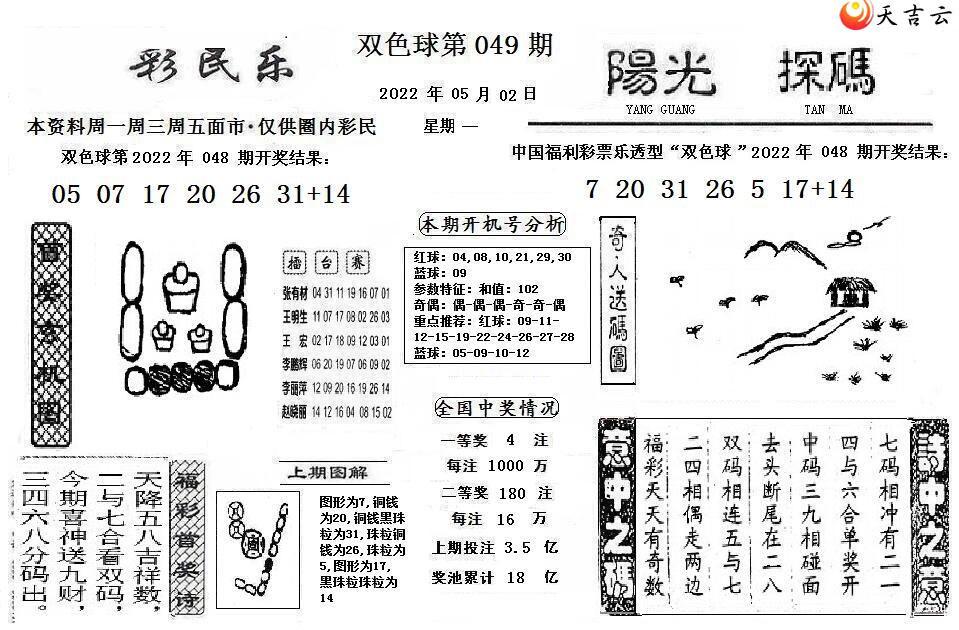 天吉云
双色球第 049 期
彩民乐
陽光 探碼
YANG GUANG TAN MA
2022 年 05 月 02 日
本资料周一周三周五面市·仅供圈内彩民
星期 一
双色球第2022 年 048 期开奖结果:
05 07 17 20 26 31+14
中国福利彩票乐透型“双色球 ”2022 年 048 期开奖结果:
7 20 31 26 5 17+14
本期开机号分析
红球: 04,08,10,21,29,30
蓝球: 09
参数特征: 和值: 102
奇偶: 偶-偶-偶-奇-奇-偶
重点推荐: 红球: 09-11-
12-15-19-22-24-26-27-28
蓝球: 05-09-10-12
擂台赛
张有材 04 31 11 19 16 07 01
王明生 11 07 17 08 02 26 03
王 宏 02 17 18 09 12 03 01
李鹏辉 06 20 19 07 06 09 02
李丽萍 12 09 20 16 19 26 14
赵晓丽 14 12 16 04 08 15 02
奇人送碼圖
全国中奖情况
一等奖 4 注
每注 1000 万
二等奖 180 注
每注 16 万
上期投注 3.5 亿
奖池累计 18 亿
福彩首奖诗
天降五八吉祥数,
二与七合看双码,
今期喜神送九财,
三四六八分码出。
上期图解
图形为7,铜钱
为20,铜钱黑珠
粒为31,珠粒铜
钱为26,珠粒为
5,图形为17,
黑珠粒珠粒为
14
七码相冲有二一
四与六合单奖开
中码三九相碰面
去头断尾在二八
双码相连五与七
二四相偶走两边
福彩天天有奇数